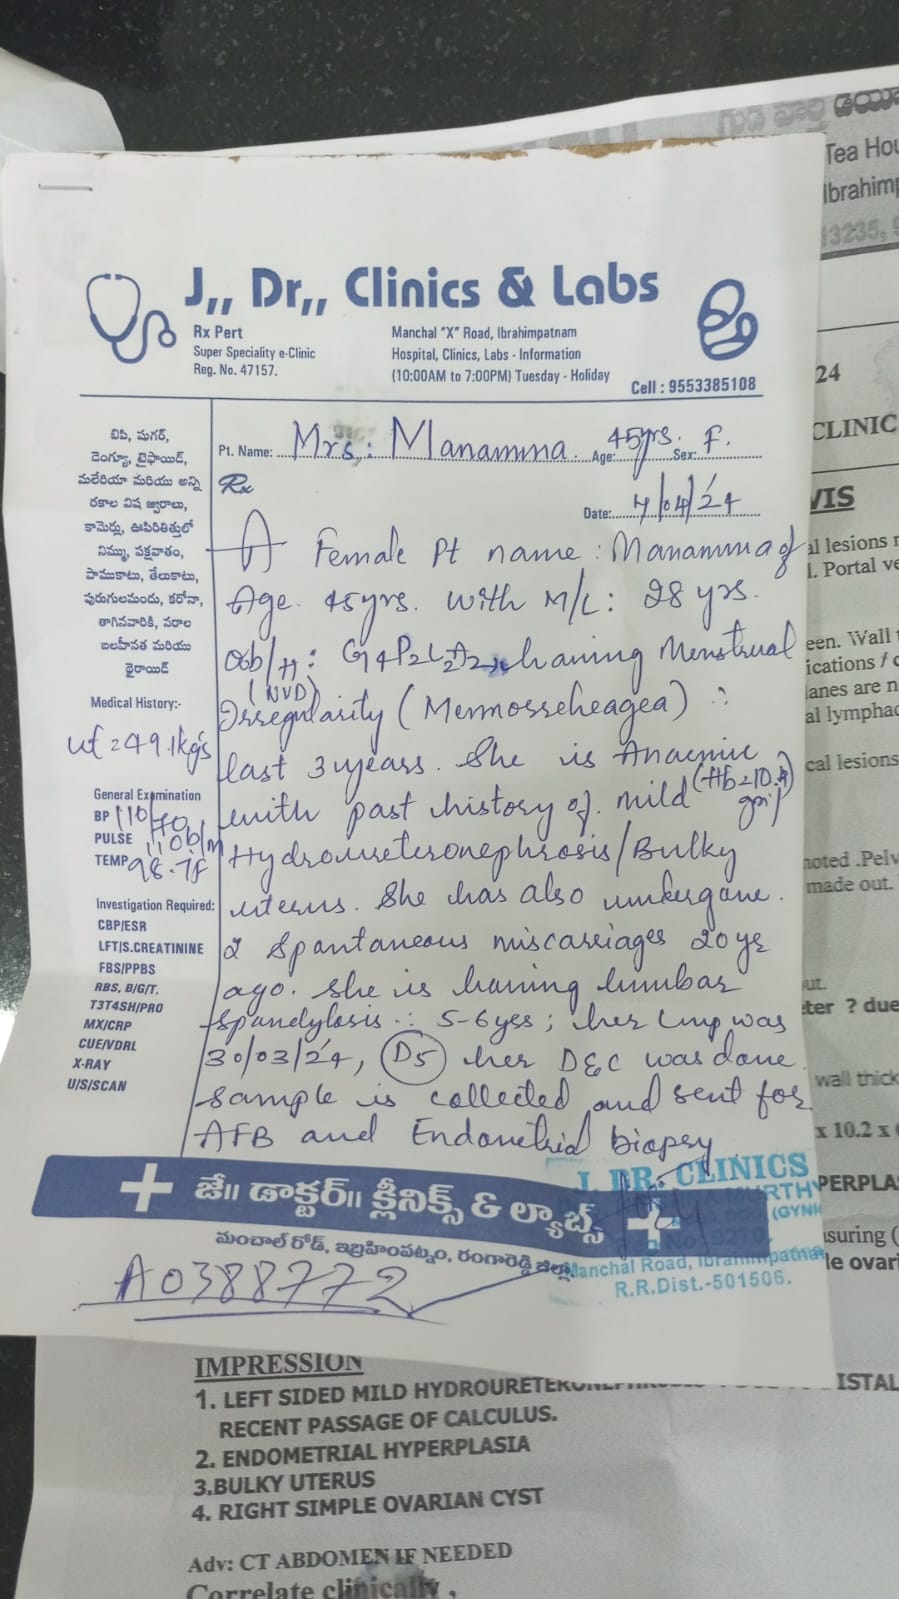 Tea Hou
Ibrahimp
13235, 9
J,, Dr,, Clinics & Labs
Rx Pert
Super Speciality e-Clinic
Reg. No. 47157.
Manchal "X" Road, Ibrahimpatnam
Hospital, Clinics, Labs - Information
(10:00AM to 7:00PM) Tuesday - Holiday
Cell : 9553385108
24
CLINIC
Pt. Name: Mrs: Manamma. Age: 45yrs. Sex: F.
Rx
Date: 7/04/24
బిపి, షుగర్,
డెంగ్యూ, టైఫాయిడ్,
మలేరియా మరియు అన్ని
రకాల విష జ్వరాలు,
కామెర్లు, ఊపిరితిత్తులో
నిమ్ము, పక్షవాతం,
పాముకాటు, తేలుకాటు,
పురుగులమందు, కరోనా,
తాగినవారికి, నరాల
బలహీనత మరియు
థైరాయిడ్
Medical History:-
wt = 49.1kg's
General Examination
BP 110/70
PULSE 110b/m
TEMP 98.7F
Investigation Required:
CBP/ESR
LFT/S.CREATININE
FBS/PPBS
RBS, B/G/T.
T3T4SH/PRO
MX/CRP
CUE/VDRL
X-RAY
U/S/SCAN
A Female Pt name : Manamma of
Age 45yrs. with M/L: 28 yrs.
Ob/H: G4P2L2A2, having Menstrual
(NVD)
Irregularity (Mennorrheagea) ∴
last 3 years. She is Anaemic
(Hb=10.
with past history of mild
Hydroureteronephrosis/Bulky
uterus. She has also undergone.
2 Spontaneous miscarriages 20ys
ago. She is having lumbar
spondylosis ∴ 5-6yrs; her Lmp was
30/03/24, D5 her D&C was done
sample is collected and sent for
AFB and Endometrial biopsy
జే॥ డాక్టర్॥ క్లీనిక్స్ & ల్యాబ్స్
మంచాల్ రోడ్, ఇబ్రహింపట్నం, రంగారెడ్డి జిల్లా
J. DR. CLINICS
MURTHY
(GYNE
Manchal Road, Ibrahimpatnam
R.R.Dist.-501506.
A0388772
VIS
al lesions
. Portal ve
een. Wall
ications / c
lanes are n
al lymphad
cal lesions
noted .Pelv
made out.
out.
ter ? due
wall thick
x 10.2 x
PERPLAS
suring (
le ovari
IMPRESSION
1. LEFT SIDED MILD HYDROURETERON ISTAL
RECENT PASSAGE OF CALCULUS.
2. ENDOMETRIAL HYPERPLASIA
3.BULKY UTERUS
4. RIGHT SIMPLE OVARIAN CYST
Adv: CT ABDOMEN IF NEEDED
Correlate clinically .